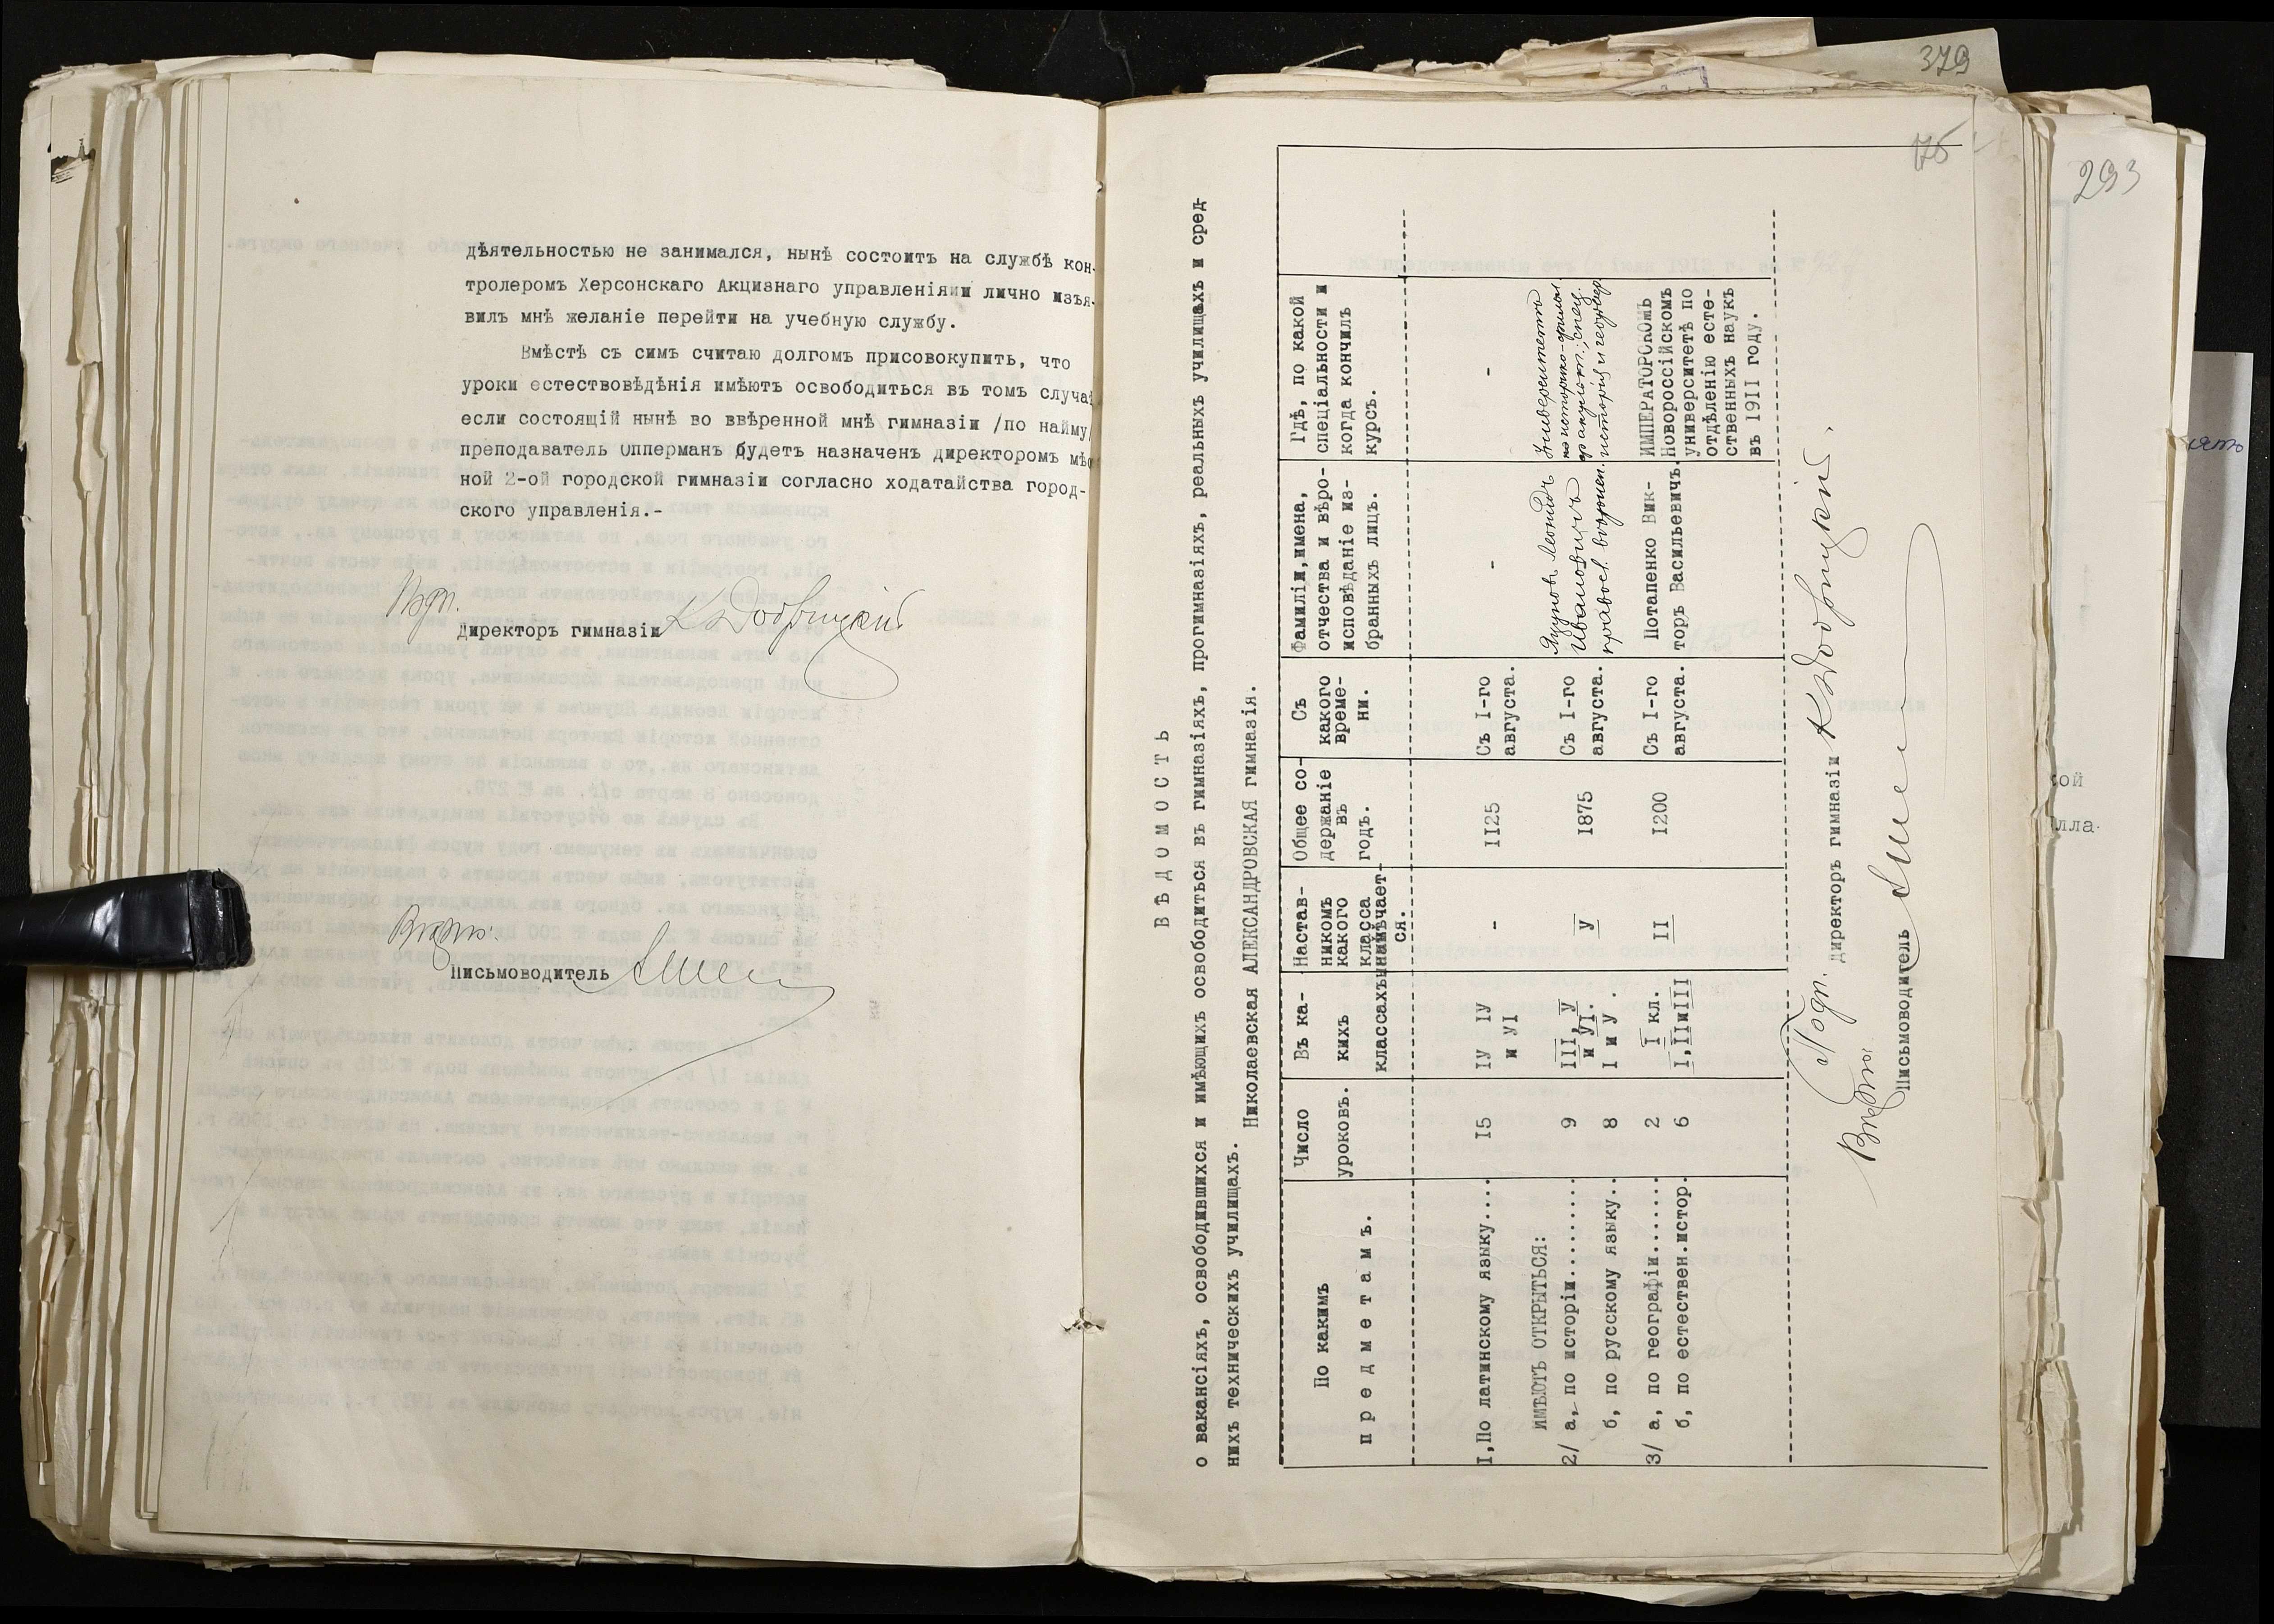 дѣятельностью не занимался, нынѣ состоитъ на службѣ кон-
тролеромъ Херсонскаго Акцизнаго управленіяии лично изъя-
вилъ мнѣ желаніе перейти на учебную службу.
Вмѣстѣ съ симъ считаю долгомъ присовокупить, что
уроки естествовѣдѣнія имѣютъ освободиться въ томъ случаѣ
если состоящій нынѣ во ввѣренной мнѣ гимназіи /по найму/
преподаватель Опперманъ будетъ назначенъ директоромъ мѣс
ной 2-ой городской гимназіи согласно ходатайства город-
ского управленія.-
Подп.
Директоръ гимназіи К Добрицкій
Вѣрно:
Письмоводитель
379
175
293
ВѢДОМОСТЬ
о вакансіяхъ, освободившихся и имѣющихъ освободиться въ гимназіяхъ, прогимназіяхъ, реальныхъ училищахъ и сред-
нихъ техническихъ училищахъ.
Николаевская АЛЕКСАНДРОВСКАЯ гимназія.
По какимъ предметамъ.
Число уроковъ.
Въ ка-кихъ классахъ
Настав-никомъ какого класса намѣчает-ся.
Общее со-держаніе въ годъ.
Съ какого време-ни.
Фамиліи,имена, отчества и вѣро-исповѣданіе из-бранныхъ лицъ.
Гдѣ, по какой спеціальности и когда кончилъ курсъ.
I,По латинскому языку.... I5 IУ IУ и УI - II25 Съ I-го августа. - -
ИМѢЮТЪ ОТКРЫТЬСЯ:
2/ а, по исторіи.......... 9 III,У и УI. У I875 Съ I-го августа. Ягуновъ Леонидъ Ивановичъ православ. вѣроисп. Университетъ по историко-филол. факульт., спец. исторія и географ.
б, по русскому языку.. 8 I и У .
3/ а, по географіи....... 2 I кл. II I200 Съ I-го августа. Потапенко Вик-торъ Васильевичъ. ИМПЕРАТОРСКОМЪ Новороссійскомъ университетѣ по отдѣленію есте-ственныхъ наукъ въ I9II году.
б, по естествен.истор. 6 I,IIиIII
Подп. Директоръ гимназіи К Добрицкій.
Вѣрно:
Письмоводитель
кой
лла-